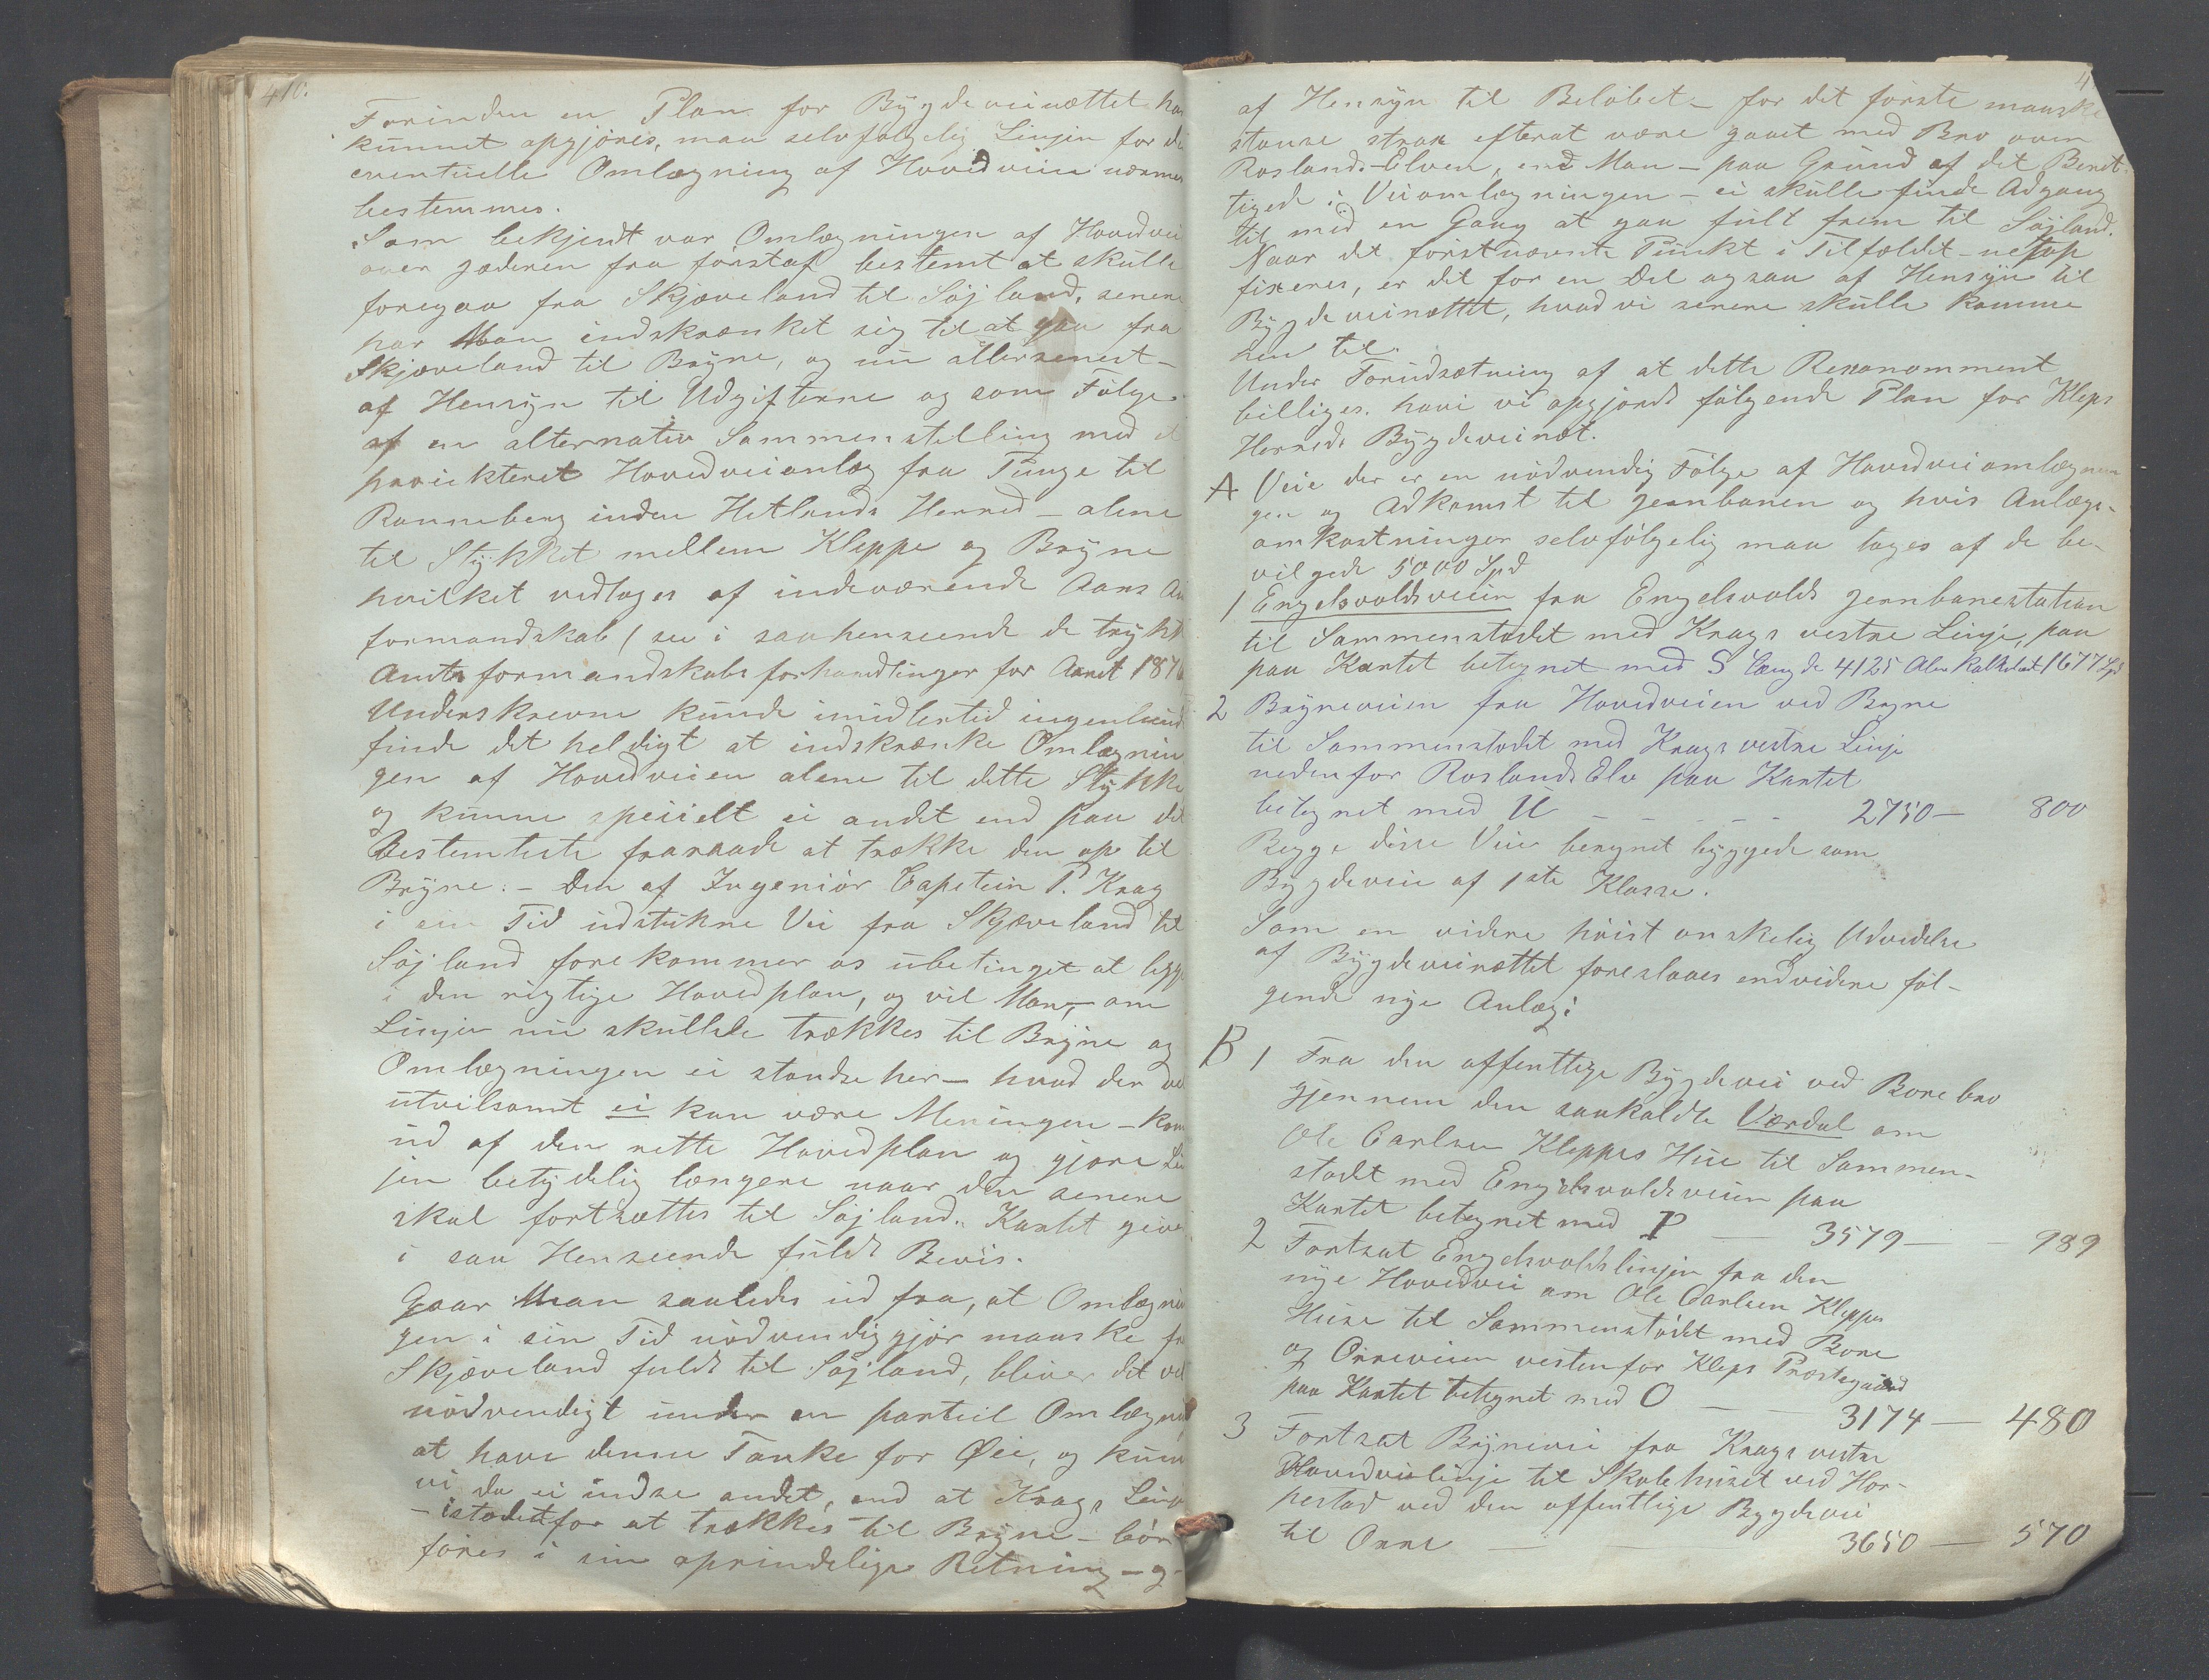 410.
Forinden en Plan for Bygdeveinættet
kunnet opgjöres, maa selvfölgelig Linjen for
eventuelle Omlægning af Hovedveiene
bestemmes.
Som bekjendt var Omlægningen af Hovedvei
over Jæderen fra först af bestemt at skulle
foregaa fra Skjæveland til Söjland, senere
har Man indskrænket sig til at gaa fra
Skjæveland til Bryne, og nu allersenest -
af Hensyn til Udgifterne og som Fölge
af en alternativ Sammenstilling med
proiekteret Hovedveianlæg fra Tunge til
Ranneberg inden Hetlands Herred - alene
til Stykket mellem Kleppe og Bryne
hvilket vedtoges af indeværende Aars
formandskab / see i saahenseende de trykte
Amtsformandskabsforhandlinger for Aaret
Underskrevne kunde imidlertid ingenlund
finde det heldigt at indskrænke Omlægnin
gen af Hovedveien alene til dette Stykke
og kunne speiielt ei andet end paa det
Bestemteste fraraade at trække den op til
Bryne. - Den af Ingeniör Capitein P. Krag
i sin Tid udstukne Vei fra Skjæveland til
Söjland forekommer os ubetinget at ligge
i den rigtige Hovedplan, og vil Man, - om
Linjen nu skullde trækkes til Bryne og
Omlægningen ei standse her - hvad der
utvilsomt ei kan være Meningen - kom
ud af den rette Hovedplan og gjöre
jen betydelig længere naar den senere
skal fortsættes til Söjland. Kartet give
i saa Henseende fuldt Bevis.
Gaar Man saaledes ud fra, at Omlægnin
gen i sin Tid nödvendiggjör maaske
Skjæveland fuldt til Söjland, bliver det
nödvendigt under en partiel Omlægning
at have denne Tanke for Øie, og kunn
vi da ei indse andet, end at Krags Linje
- istedetfor at trækkes til Bryne - bör
föres i sin oprindelige Retning - og
af Hensyn til Belöbet - for det förste maaske
stanse strax efterat være gaaet med Bro over
Roslands-Elven, end Man - paa Grund af det Beret-
tigede i Veiomlægningen - ei skulle finde Adgang
til med en Gang at gaa fult frem til Söjland.
Naar det förstnævnte Punkt i Tilfældet - netop
fixeres, er det for en Del ogsaa af Hensyn til
Bygdeveinættet, hvad vi senere skulle komme
hen til.
Under Forudsætning af at dette Resonomment
billiges. have vi opgjordt fölgende Plan for Kleps
Herreds Bygdeveinæt.
A Veie der er en nödvendig Fölge af Hovedveiomlægnin
gen og Adkomst til Jernbanen og hvis Anlægs-
omkostninger selvfölgelig maa tages af de be-
vilgede 5000 Spd
1 Engelsvoldsveien fra Engelsvolds Jernbanestation
til Sammenstödet med Krags vestre Linje, paa
paa Kartet betegnet med S længde 4125 Alen Kalkulert 1677 Spd
2 Bryneveien fra Hovedveien ved Bryne
til Sammenstödet med Krags vestre Linje
nedenfor Roslands Elv paa Kartet
betegnet med U - - - - - 2750 - 800
Begge disse Veie beregnet byggede som
Bygdeveie af 1ste Klasse.
Som en videre höist önskelig Udvidelse
af Bygdeveinættet foreslaaes endvidere föl-
gende nye Anlæg:
B 1 Fra den offentlige Bygdevei ved Bore bro
gjennem den saakaldte Værdal om
Ole Carlsen Kleppes Hue til Sammen-
stödt med Engelsvoldsveien paa
Kartet betegnet med P — 3579 — 989
2 Fortsat Engelsvoldslinjen fra den
nye Hovedvei om Ole Carlsen Kleppes
Huse til Sammenstödet med Bore
og Orreveien vestenfor Kleps Præstegaard
paa Kartet betegnet med O — 3174 — 480
3 Fortsat Brynevei fra Krags vestre
Hovedveilinje til Skolehuset ved Hor-
pestad ved den offentlige Bygdevei
til Orre — 3650 — 570